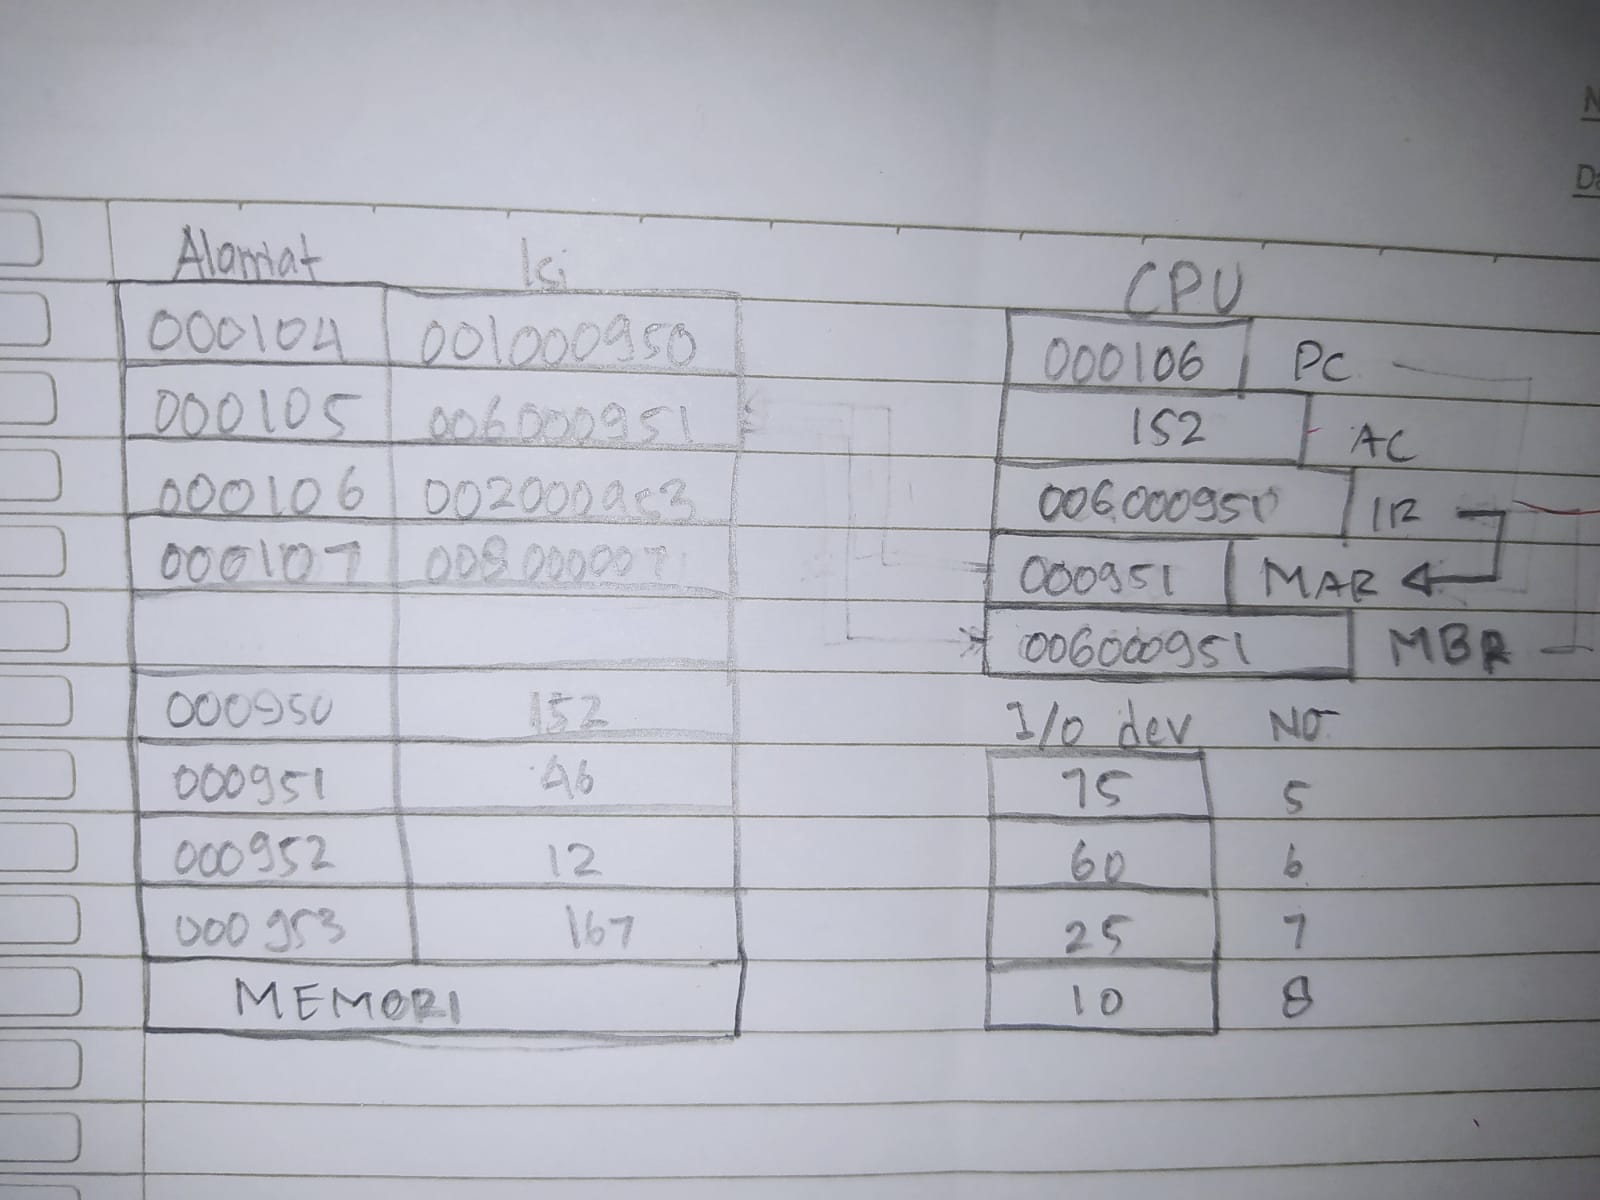 Alamat Isi
000104 001000950
000105 006000951
000106 002000953
000107 008000007
000950 152
000951 46
000952 12
000953 167
MEMORI
CPU
000106 PC
152 AC
006000950 IR
000951 MAR
006000951 MBR
I/O dev NO
75 5
60 6
25 7
10 8
N
Da